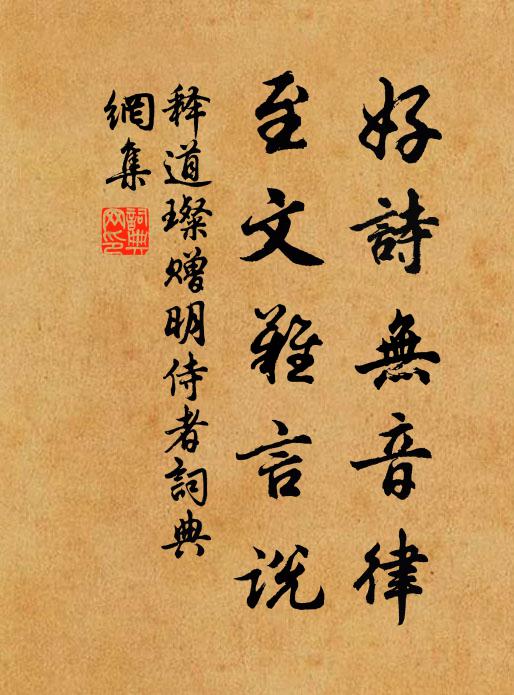 好詩無音律
至文難言說
释道璨赠明侍者詞典
網集
詞典
网印